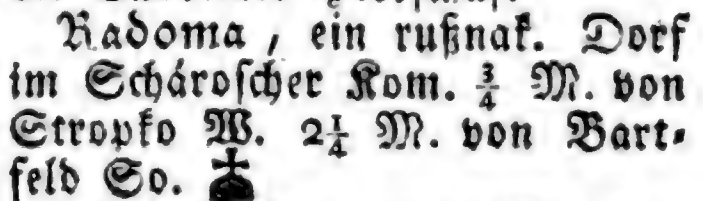 Radoma, ein rußnak. Dorf
im Schároſcher Kom. ¾ M. von
Stropko W. 2¼ M. von Bart⸗
feld So.